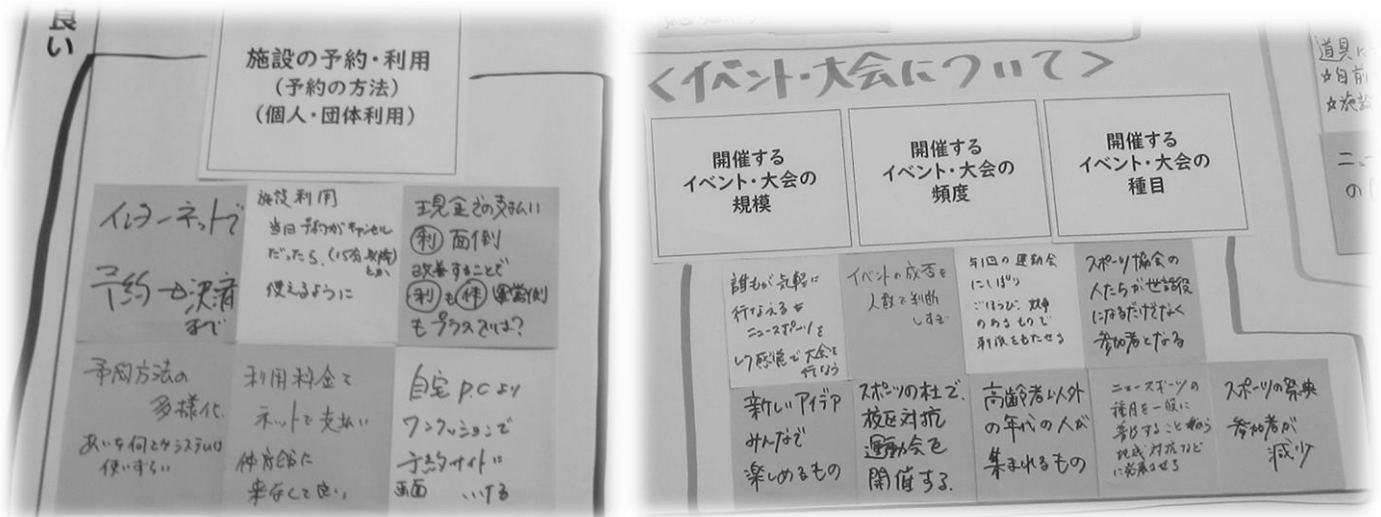 良い
施設の予約・利用
(予約の方法)
(個人・団体利用)
インターネットで
予約→決済
まで
施設利用
当日予約がキャンセル
だったら、(15分以降)
とか
使えるように
現金での支払い
利 面倒
改善することで
利も体運営側
もプラスでは?
予約方法の
多様化
システムは
使いずらい
利用料金を
ネットで支払い
体育館に
来なくて良い
自宅P.Cより
ワンクッションで
予約サイトに
画面 いける
<イベント・大会について>
開催する
イベント・大会の
規模
開催する
イベント・大会の
頻度
開催する
イベント・大会の
種目
誰もが気軽に
行なえる
ニュースポーツを
大会を
行なう
イベントの成否を
人数で判断
しすぎ
年1回の運動会
にしばり
ごほうび、
のあるもので
スポーツ協会の
人たちが世話役
になるだけでなく
参加者となる
新しいアイデア
みんなで
楽しめるもの
スポーツの杜で、
校区対抗
運動会を
開催する。
高齢者以外
の年代の人が
集まれるもの
ニュースポーツの
種目を一般に
普及すること
地域対抗など
に発展させる
スポーツの祭典
参加者が
減少
道具に
☆自前
☆施設
ニュー
の